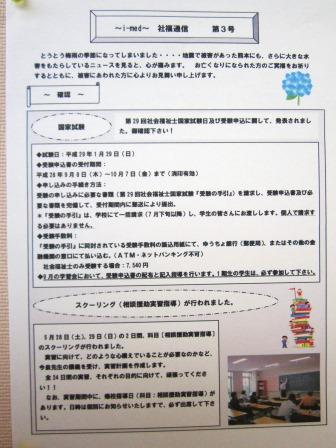 ～i-med～　社福通信　　第３号
とうとう梅雨の季節になってしまいました・・・・地震で被害があった熊本にも、さらに大きな水害をもたらしているニュースを見ると、心が痛みます。　お亡くなりになられた方のご冥福をお祈りするとともに、被害にあわれた方に心よりお見舞い申し上げます。
～　確認　～
国家試験
第29回社会福祉士国家試験日及び受験申込に関して、発表されました。御確認下さい！
◆試験日：平成29年1月29日（日）
◆受験申込書の受付期間：
平成28年9月8日（木）～10月7日（金）まで（消印有効）
◆申し込みの手続き方法：
受験の申し込みに必要な書類（第29回社会福祉士国家試験『受験の手引』）を請求し、受験申込書及び必要な書類を完備して、受付期間内に郵送により提出。
＊『受験の手引』は、学校にて一括請求（7月下旬以降）し、学生の皆さんにお渡しします。個人で請求する必要はありません。
◆受験手数料：
『受験の手引』に同封されている受験手数料の振込用紙にて、ゆうちょ銀行（郵便局）、またはその他の金融機関の窓口にて払い込む。（ATM・ネットバンキング不可）
社会福祉士のみ受験する場合：7,540円
◆9月の学習会において、受験申込書の配布と記入指導を行います。1期生の学生は、必ず参加して下さい。
スクーリング（相談援助実習指導）が行われました。
5月28日（土）、29日（日）の2日間、科目【相談援助実習指導】のスクーリングが行われました。
実習に向けて、どのような心構えでいることが必要なのかなど、今泉先生の講義を受け、実習計画を作成します。
全24日間の実習、それぞれの目的に向けて、頑張ってください！！
なお、実習期間中に、帰校指導日（科目：相談援助実習指導）があります。日時は個別にお知らせいたしますで、必ず出席して下さい。